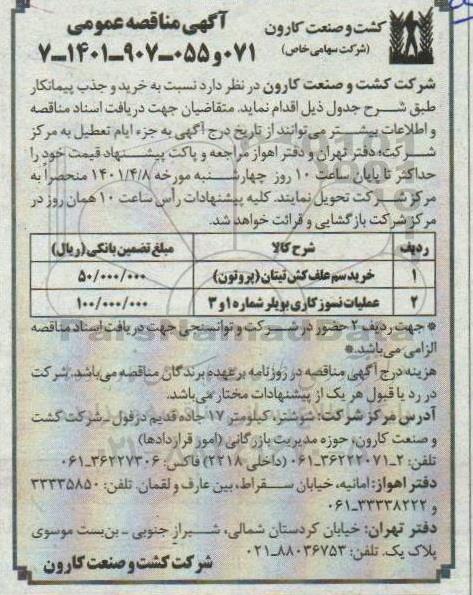 آگهی مناقصه عمومی
۰۷۱و۰۵۵-۹۰۷-۱۴۰۱-۷
کشت و صنعت کارون
(شرکت سهامی خاص)
شرکت کشت و صنعت کارون در نظر دارد نسبت به خرید و جذب پیمانکار
طبق شرح جدول ذیل اقدام نماید. متقاضیان جهت دریافت اسناد مناقصه
و اطلاعات بیشتر می‌توانند از تاریخ درج آگهی به جزء ایام تعطیل به مرکز
شرکت؛ دفتر تهران و دفتر اهواز مراجعه و پاکت پیشنهاد قیمت خود را
حداکثر تا پایان ساعت ۱۰ روز چهارشنبه مورخه ۱۴۰۱/۴/۸ منحصراً به
مرکز شرکت تحویل نمایند. کلیه پیشنهادات رأس ساعت ۱۰ همان روز در
مرکز شرکت بازگشایی و قرائت خواهد شد.
ردیف شرح کالا مبلغ تضمین بانکی (ریال)
۱ خرید سم علف کش تیتان (پروتون) ۵۰/۰۰۰/۰۰۰
۲ عملیات نسوز کاری بویلر شماره ۱ و ۳ ۱۰۰/۰۰۰/۰۰۰
* جهت ردیف ۲ حضور در شرکت و توانسنجی جهت دریافت اسناد مناقصه
الزامی می‌باشد.*
هزینه درج آگهی مناقصه در روزنامه بر عهده برندگان مناقصه می‌باشد. شرکت
در رد یا قبول هر یک از پیشنهادات مختار می‌باشد.
آدرس مرکز شرکت: شوشتر، کیلومتر ۱۷ جاده قدیم دزفول - شرکت کشت
و صنعت کارون، حوزه مدیریت بازرگانی (امور قراردادها)
تلفن: ۲-۳۶۲۲۲۰۷۱-۰۶۱ (داخلی ۲۲۱۸) فاکس: ۳۶۲۲۷۳۰۶-۰۶۱
دفتر اهواز: امانیه، خیابان سقراط، بین عارف و لقمان. تلفن: ۳۳۳۳۵۸۵۰
و ۳۳۳۳۸۲۲۲-۰۶۱
دفتر تهران: خیابان کردستان شمالی، شیراز جنوبی - بن‌بست موسوی
پلاک یک. تلفن: ۸۸۰۳۶۷۵۳-۰۲۱
شرکت کشت و صنعت کارون